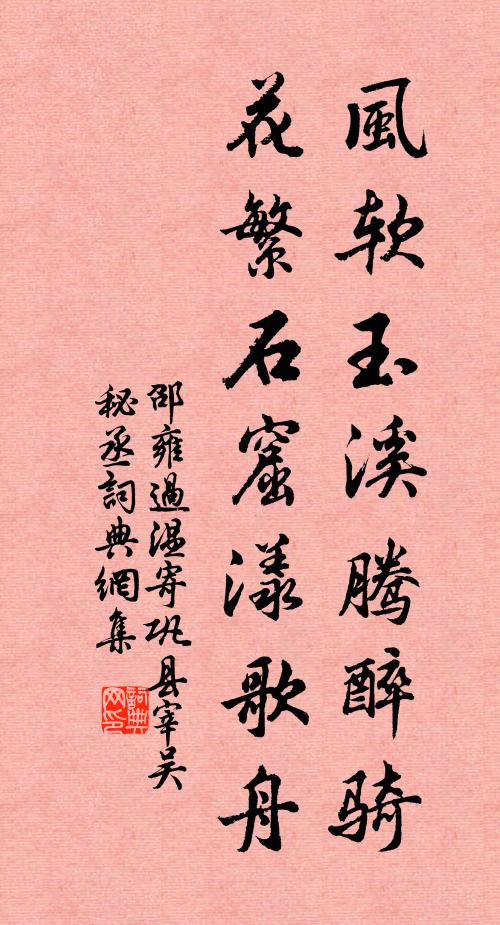 風软玉溪腾醉骑
花繁石窟漾歌舟
邵雍過温寄巩县宰吴
秘丞詞典網集
詞典
网印